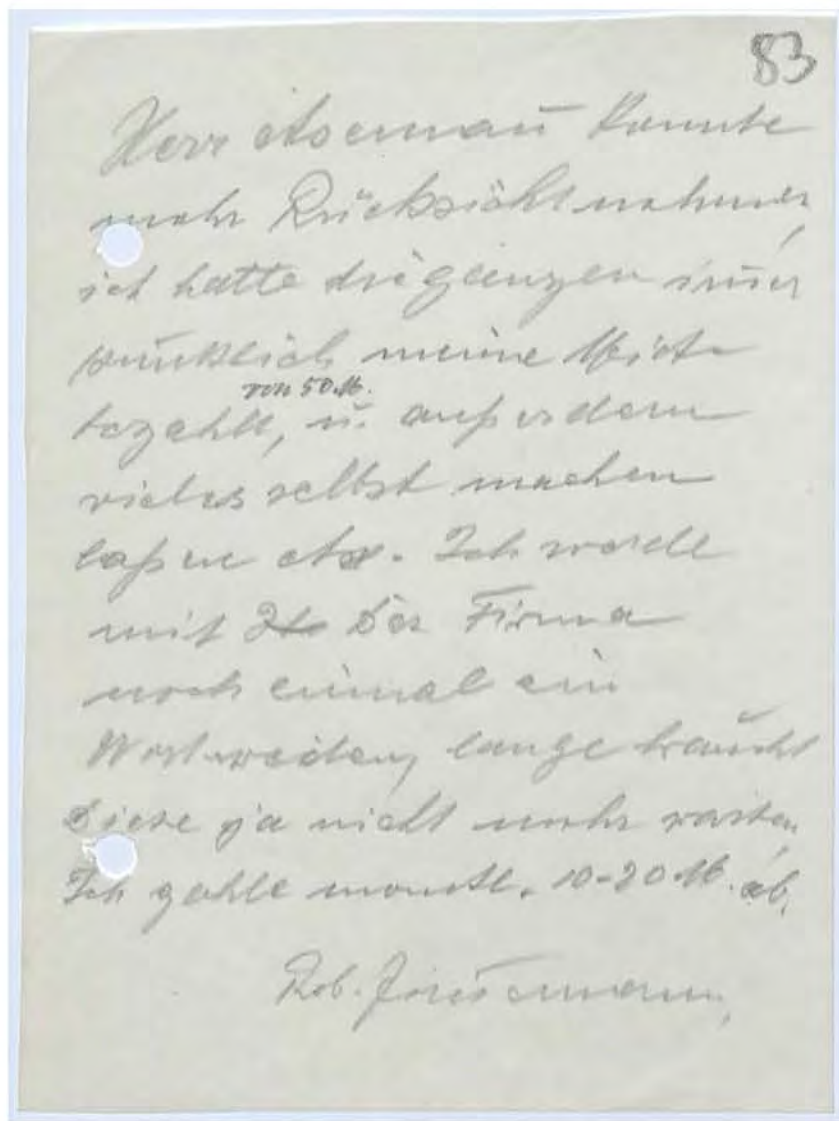 83
Herr konnte
mehr Rücksicht nehmen,
ich hatte die ganzen im̅er
pünktlich meine Miete
von 50 M.
bezahlt, u. außerdem
vieles selbst machen
laßen etc. Ich werde
mit der Firma
noch einmal ein
Wort reden, lange braucht
diese ja nicht mehr warten.
Ich zahle monatl. 10-20 M. ab.
Rob.